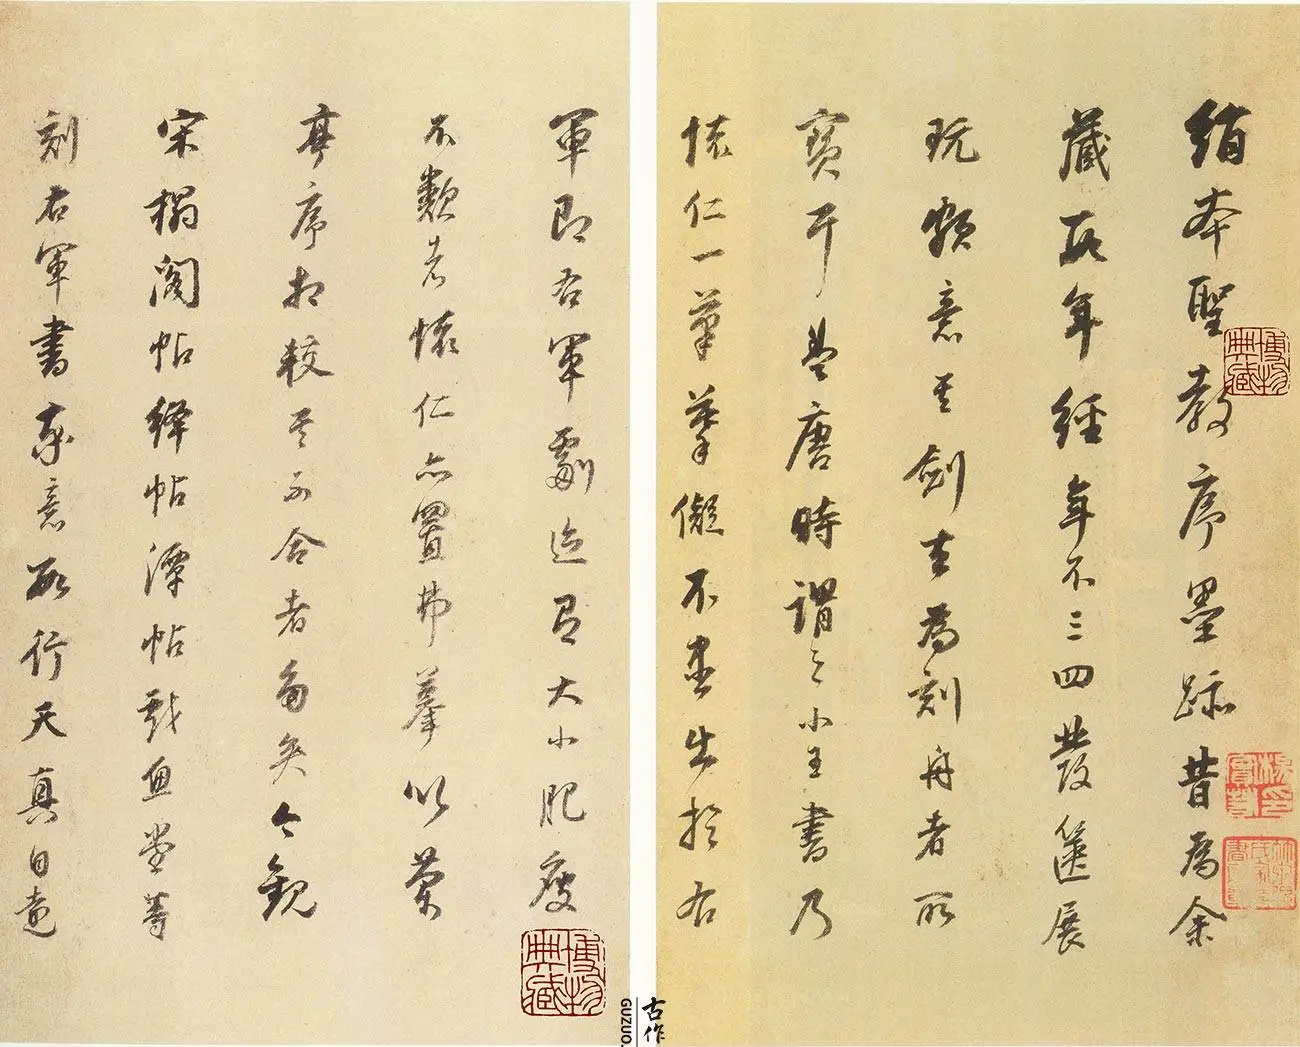 絹本聖教序墨跡昔為余
藏數年經年不三四發篋展
玩頗意其劍去為刻舟者所
寶耳蓋唐時謂之小王書乃
懷仁一筆摹儗不盡出於右
軍即右軍劇迹有大小肥瘦
不類者懷仁亦置弗摹以蘭
亭序相較其不合者多矣今觀
宋榻閣帖絳帖潭帖戲魚堂等
刻右軍書率意數行天真自遠
博物典藏
博物典藏
古作
GUZUO.